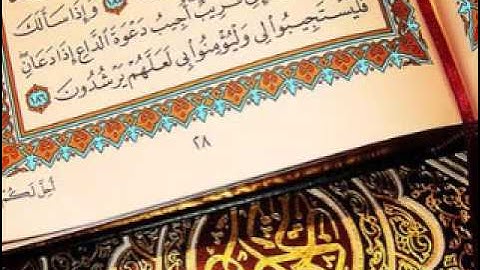 وَإِذَا سَأَلَكَ
قَرِيبٌ أُجِيبُ دَعْوَةَ ٱلدَّاعِ إِذَا دَعَانِ
فَلْيَسْتَجِيبُوا۟ لِى وَلْيُؤْمِنُوا۟ بِى لَعَلَّهُمْ يَرْشُدُونَ ١٨٦
٢٨
أُحِلَّ لَكُمْ